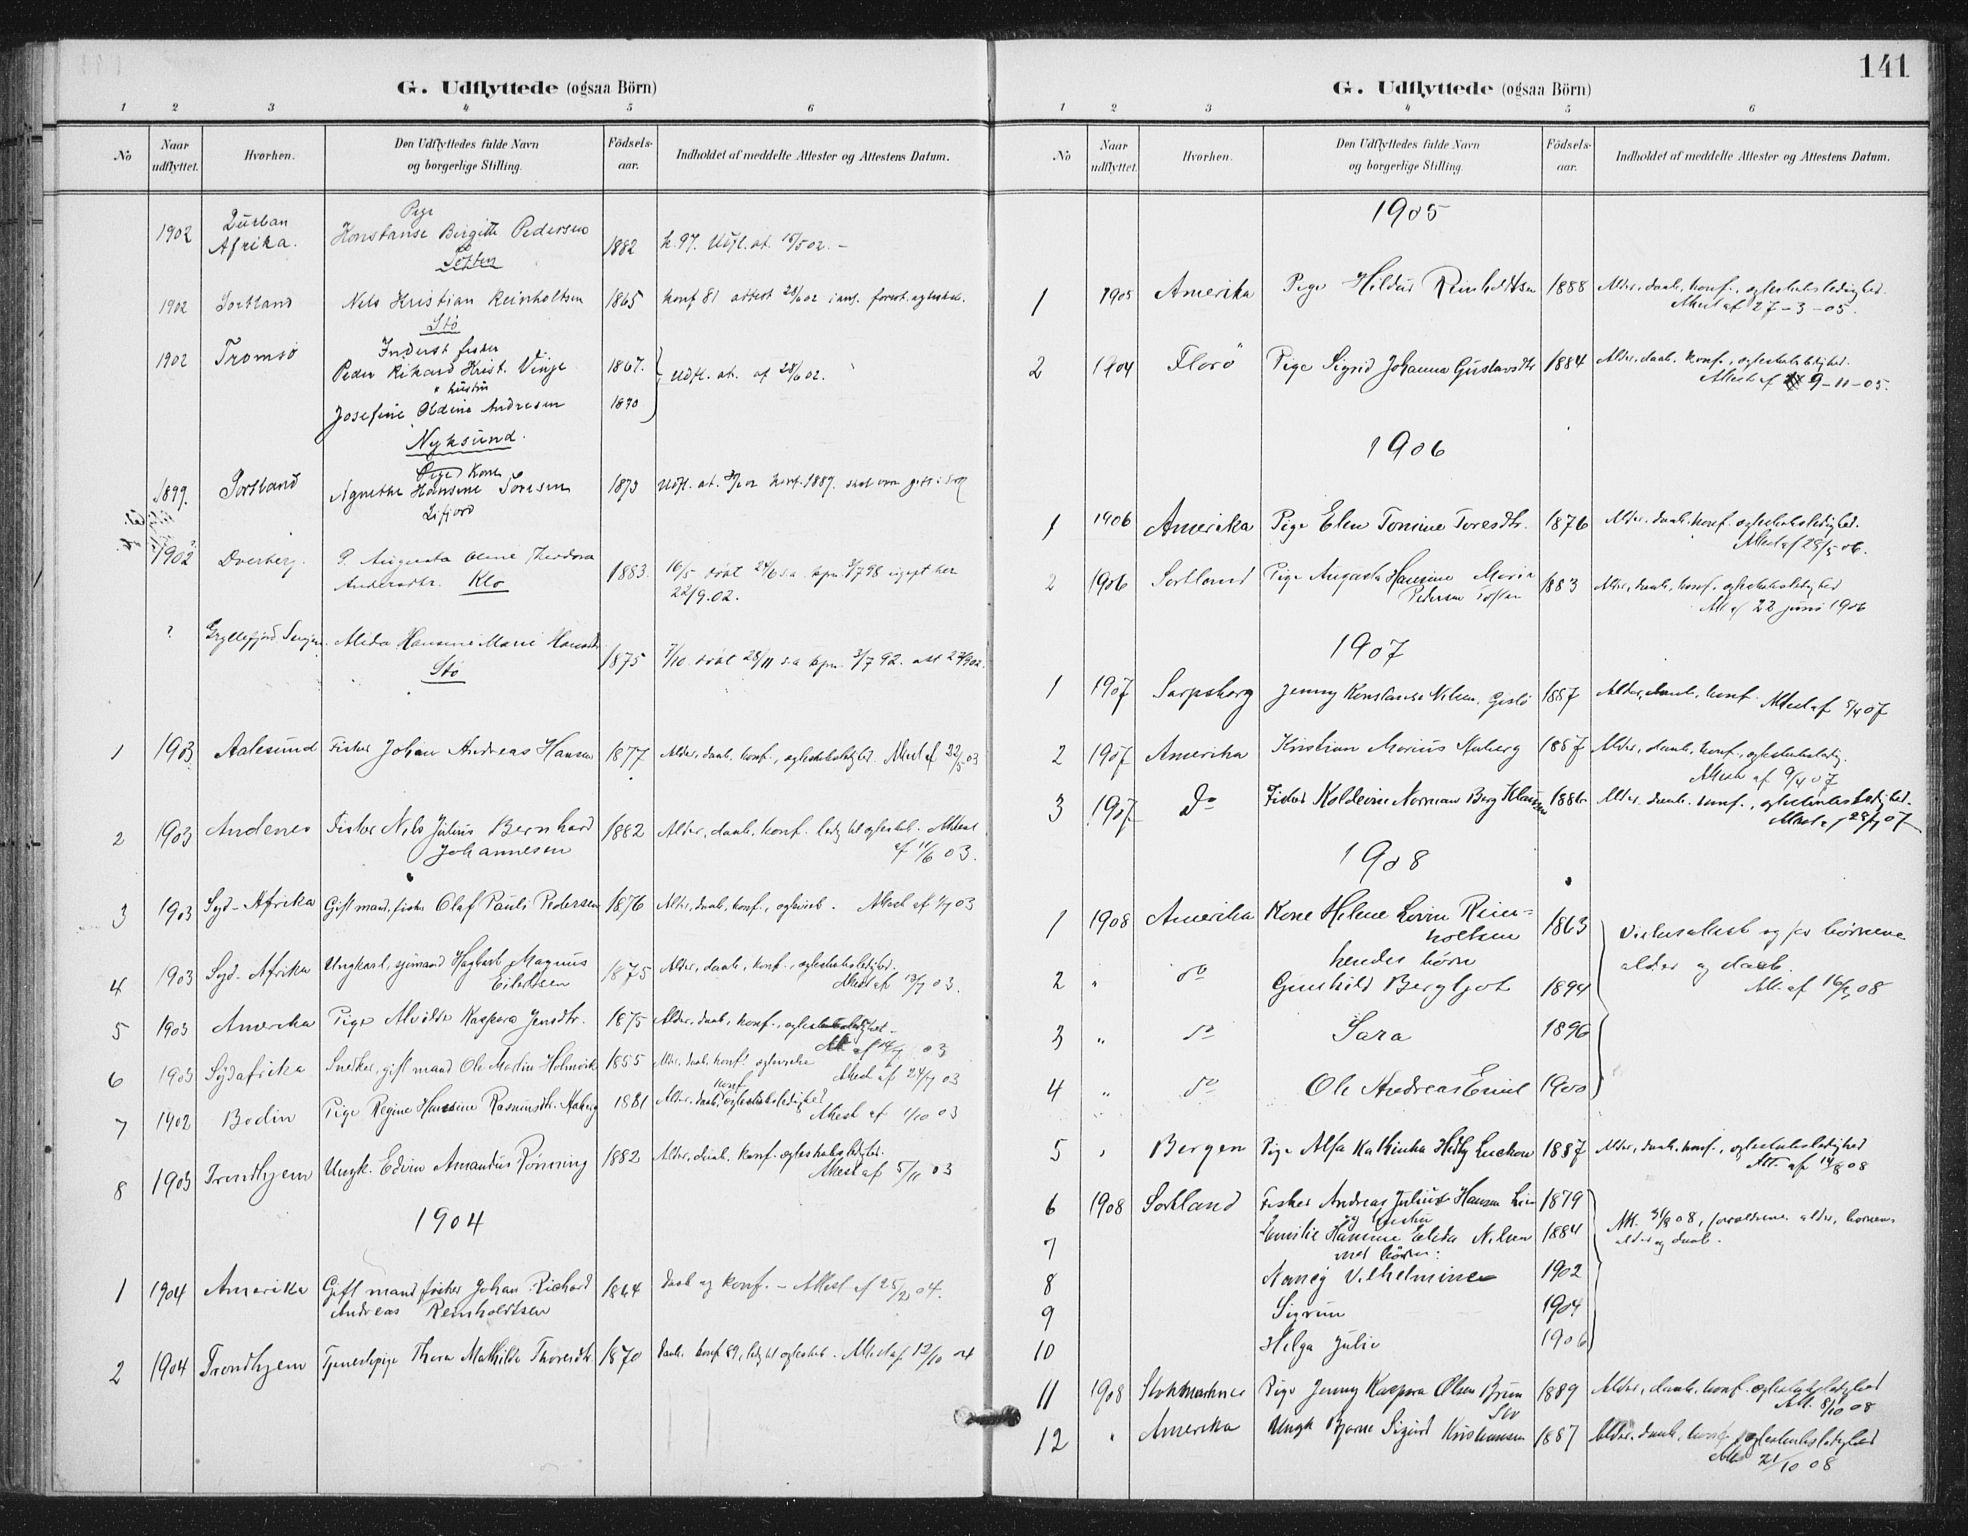 G. Udflyttede (ogsaa Börn)
1 2 3 4 5 6
No Naar udflyttet. Hvorhen. Den Udflyttedes fulde Navn og borgerlige Stilling. Fødsels-aar. Indholdet af meddelte Attester og Attestens Datum.
Pige
1902 Durban Konstanse Birgitte Pedersen 1882 k. 97. Udfl. at.
Afrika. Toften
1902 Sortland Nels Kristian Reinholtsen 1865 konf 81 attest
Stö
1902 Tromsö Inderst fisker
Peder Rikard Krist. Vinje 1867. Udfl. at. af 28/6 02.
" hustru
Josefine Oldine Andresen 1870
Nyksund.
Pige Kone
1899. Sortland Agnethe Hansine Sörensen 1873 Udfl. at. konf. 1887.
Lifjord
1902 Dverberg. P. Augusta Oline Theodora 1883. 16/5 döbt 24/6 s.a. kpn. 3/7 98
Andersdtr. Klo 22/9.02.
? Gryllefjord Senjen Alida Hansine Marie Hansdtr 1875 7/10 döbt 28/11 s.a. kpn. 3/7 92.
Stö
1 1903 Aalesund Fisker Johan Andreas Hansen 1877 Alder, daab, konf., ægteskabsledighed. Attest af 22/5 03
2 1903 Andenes Fisker Nils Julius Bernhard 1882 Alder, daab, konf. ledig til ægteskab. Attest
Johannesen af 11/6 03.
3 1903 Syd-Afrika Gift mand, fisker Olaf Pauli Pedersen 1876 Alder, daab, konf., Attest af 03
4 1903 Syd-Afrika Ungkarl, sjömand Hagbart Magnus 1875 Alder, daab, konf., ægteskabsledighed.
Eilertsen Attest af 13/7 03.
5 1903 Amerika Pige Alvilde Kaspara Jensdtr. 1875 Alder, daab, konf., ægteskabsledighed.
Att. af 14/7 03
6 1903 Sydafrika Snedker, gift mand Ole Martin Holmvik 1855 Alder, daab, konf.
Attest af 24/7 03
7 1902 Bodin Pige Regine Hansine Rasmusdtr. Aaberg 1881 Alder, daab, konf. ægteskabsledighed
Attest af 1/10 03
8 1903 Trondhjem Ungk. Edvin Amandus Rönning 1882 Alder, daab, konf. ægteskabsledighed.
Attest af 5/11 03
1904
1 1904 Amerika Gift mand, fisker Johan Richard 1864 Daab og konf. – Attest af 25/2 04.
Andreas Reinholdtsen
2 1904 Trondhjem Tjenestepige Thora Mathilde Thoresdtr. 1870 Daab, konf 89, ledig til ægteskab. Attest af 12/10 04
141
G. Udflyttede (ogsaa Börn)
1 2 3 4 5 6
No Naar udflyttet. Hvorhen. Den Udflyttedes fulde Navn og borgerlige Stilling. Fødsels-aar. Indholdet af meddelte Attester og Attestens Datum.
1905
1 1905 Amerika Pige Hildur Reinholdtsen 1888 Alder, daab, konf., ægteskabsledighed.
Attest af 27-3-05.
2 1904 Florö Pige Sigrid Johanna Gustavsdtr 1884 Alder, daab, konf., ægteskabsledighed.
Attest af 9-11-05.
1906
1 1906 Amerika Pige Elen Tomine Toresdtr. 1876 Alder, daab, konf. ægteskabsledighed.
Attest af 28/5 06.
2 1906 Sortland Pige Augusta Hansine Maria 1883 Alder, daab, konf., ægteskabsledighed
Pedersen Toften Att. af 22 juni 1906
1907
1 1907 Sarpsborg Jenny Konstanse Nilsen, Gislö 1887 Alder, daab, konf. Attest af 5/4 07
2 1907 Amerika Kristian Marius Aaberg 1887 Alder, daab, konf., ægteskabsledig.
Attest af 9/4 07
3 1907 Do Fisker Koldevin Norman Berg Klausen 1886 Alder, daab, konf., ægteskabsledighed.
Attest af 07
1908
1 1908 Amerika Kone Helene Lovise Rein- 1863 Vielsesattest og for börnene
holtsen alder og daab.
hendes börn Att. af 08
2 " do Gunhild Bergljot 1894
3 " do Sara 1896
4 " do Ole Andreas Emil 1900
5 " Bergen Pige Alfa Kathinka Hedly Luckow 1887 Alder, daab, konf., ægteskabsledighed
Att. af 14/8 08
6 1908 Sortland Fisker Andreas Julius Hansen 1879
og hustru Att. 31/8 08, forældrene alder, börnene
7 Emilie Hansine Elida Nilsen 1884 alder og daab.
med börn:
8 Nancy Vilhelmine 1902
9 Sigrun 1904
10 Helga Julie 1906
11 1908 Stokmarknes Pige Jenny Kaspara Olsen Bruun 1889 Alder, daab, konf. ægteskabsledighed
Stö Att. 8/10 08
12 " Amerika Ungk Bjarne Sigurd Kristiansen 1887 Alder, daab, konf., ægteskabsledighed
Att 21/10 08